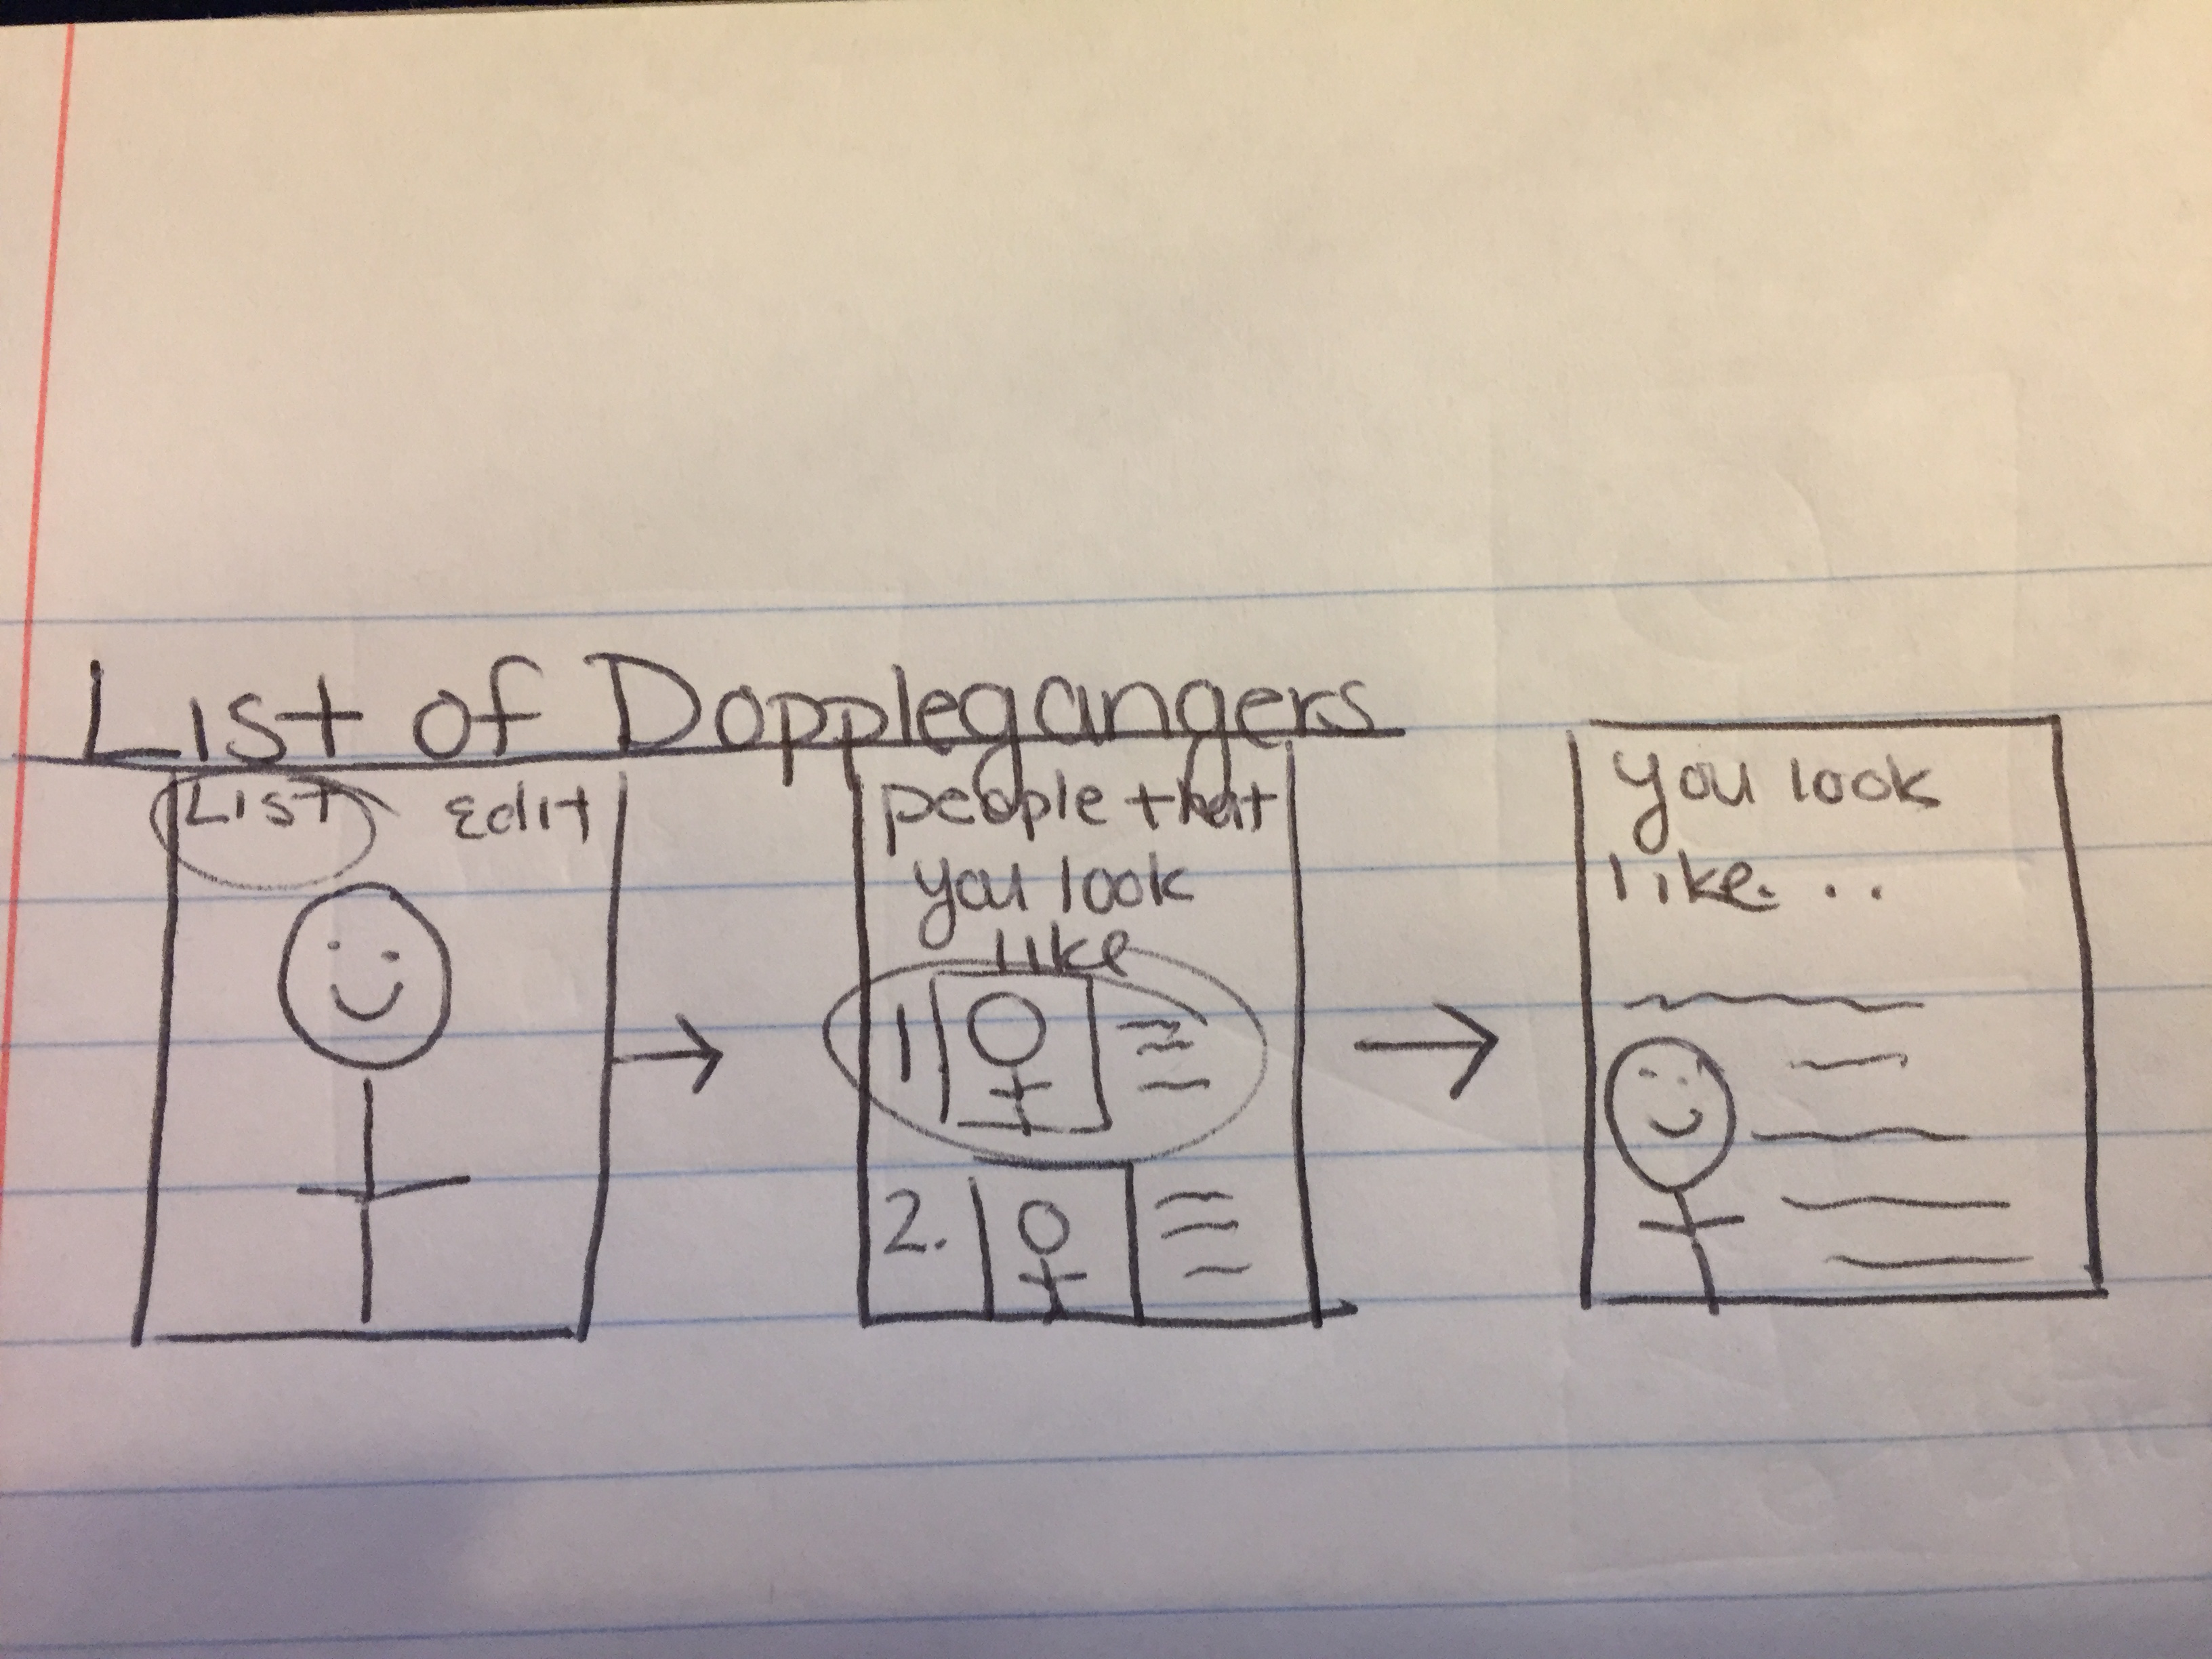 List of Dopplegangers
List edit
people that
you look
like
1
2.
you look
like...